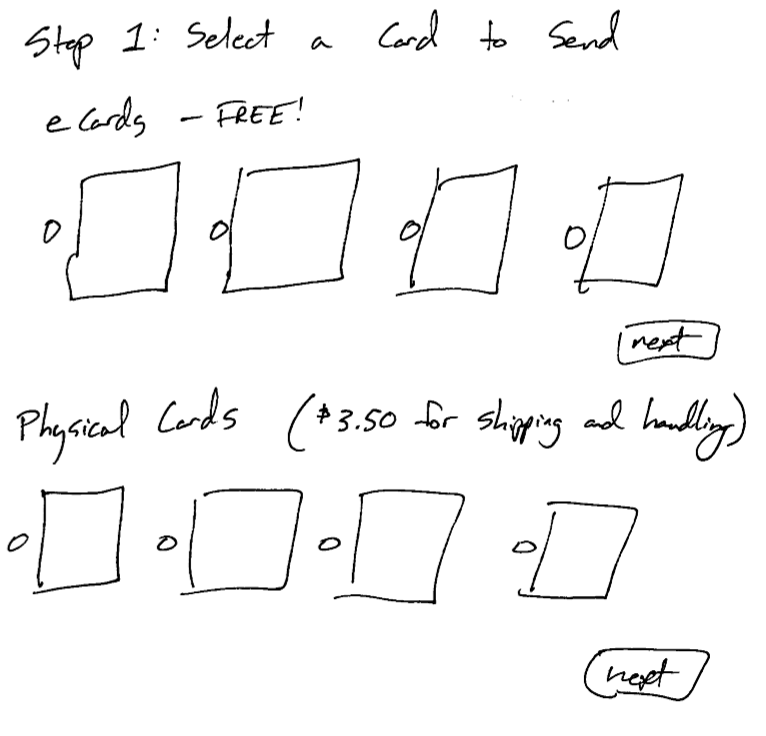 Step 1: Select a Card to Send
eCards - FREE!
next
Physical Cards ($3.50 for shipping and handling)
next